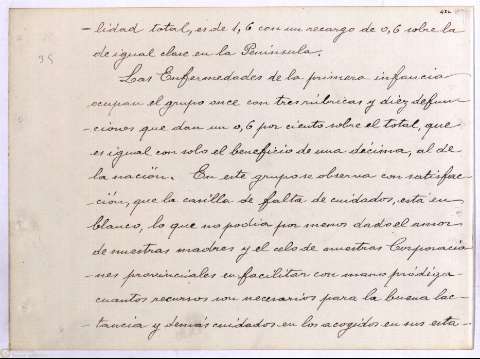 - lidad total, es de 1,6 con un recargo de 0,6 sobre la
de igual clase en la Península.
Las Enfermedades de la primera infancia
ocupan el grupo once con tres rúbricas y diez defun-
ciones que dan un 0,6 por ciento sobre el total, que
es igual con solo el beneficio de una décima, al de
la nación. En este grupo se observa con satisfac-
ción, que la casilla de falta de cuidados, está en
blanco, lo que no podía por menos dado el amor
de nuestras madres y el celo de nuestras Corporacio
- nes provinciales en facilitar con mano pródiga
cuantos recursos son necesarios para la buena lac-
- tancia y demás cuidados en los acogidos en sus esta-